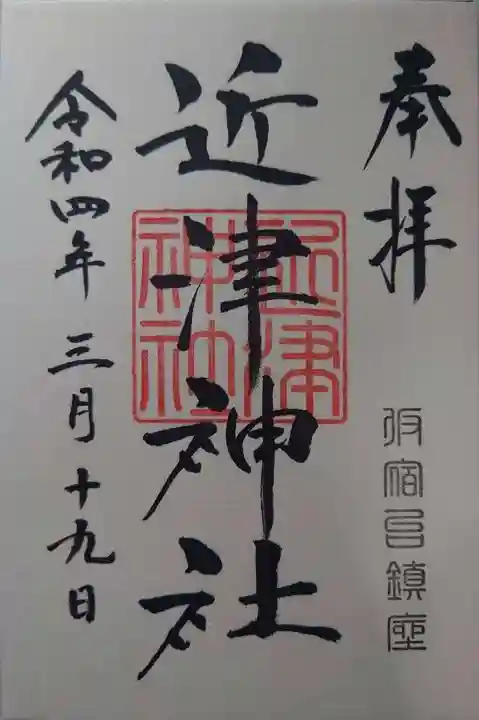 奉拝
仮宿邑鎮座
近津神社
近津神社
令和四年三月十九日